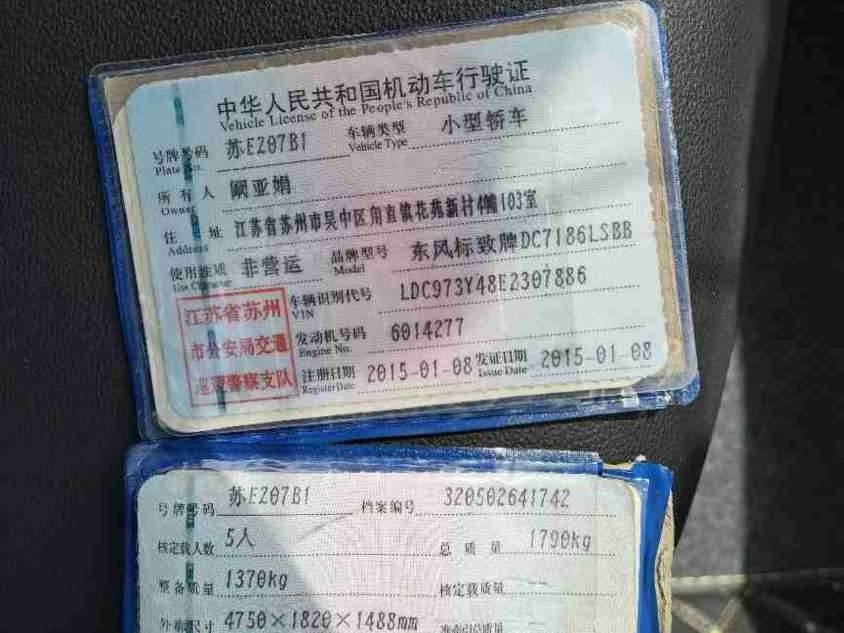 中华人民共和国机动车行驶证
Vehicle License of the People's Republic of China
号牌号码 苏EZ07B1 车辆类型 小型轿车
Plate No. Vehicle Type
所有人 阚亚娟
Owner
住址 江苏省苏州市吴中区甪直镇花苑新村4幢103室
Address
使用性质 非营运 品牌型号 东风标致牌DC7186LSBB
Use Character Model
江苏省苏州
市公安局交通
巡逻警察支队
车辆识别代号 LDC973Y48E2307886
VIN
发动机号码 6014277
Engine No.
注册日期 2015-01-08 发证日期 2015-01-08
Register Date Issue Date
号牌号码 苏EZ07B1 档案编号 320502641742
核定载人数 5人 总质量 1790kg
整备质量 1370kg 核定载质量 --
外廓尺寸 4750×1820×1488mm 准牵引总质量 --